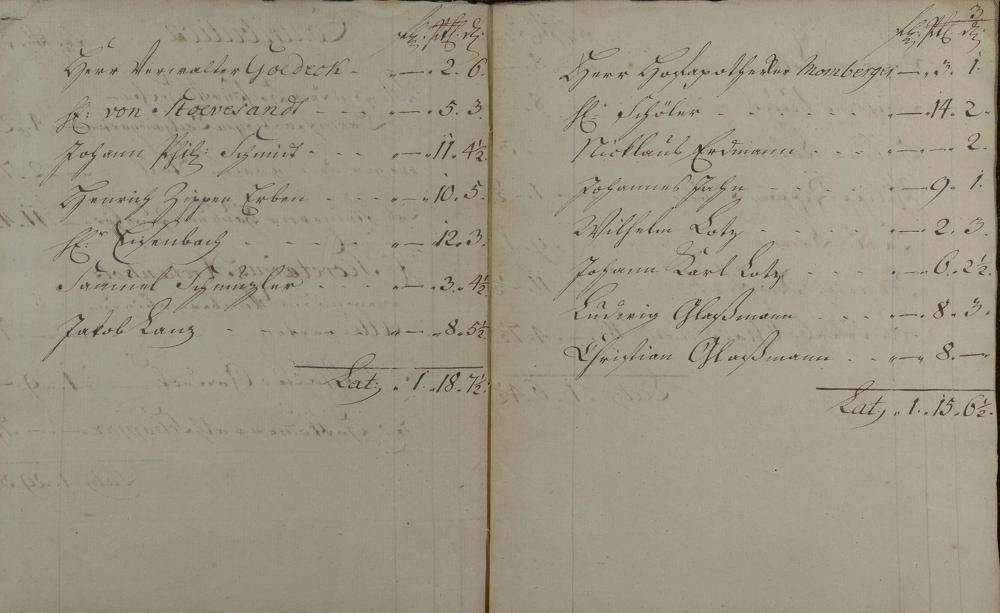 Herr Verwalter Goedeck - - 2. 6.
H: von Stoevesandt - - - - 5. 3.
Johann Phil: Schmidt - - - - 11. 4½.
Henrich Zippen Erben - - - - 10. 5.
H: Eysenbach - - - - - 12. 3.
Samuel - - - - 3. 4½
Jakob Lanz - - 8. 5½
Lat: 1. 18. 7½.
3
Herr Hofapotheker Momberger - 3. 1.
H: Schöler - - - - - - 14. 2.
Nicklaus Erdmann - - - - - 2.
Johannes Jahn - - - - 9. 1.
Wilhelm Lotz - - - - - 2. 3.
Johann Karl Lotz - - - 6. 2½.
Ludwig Glaßmann - - - 8. 3.
Christian Glaßmann - - - 8. -
Lat: 1. 15. 6½.